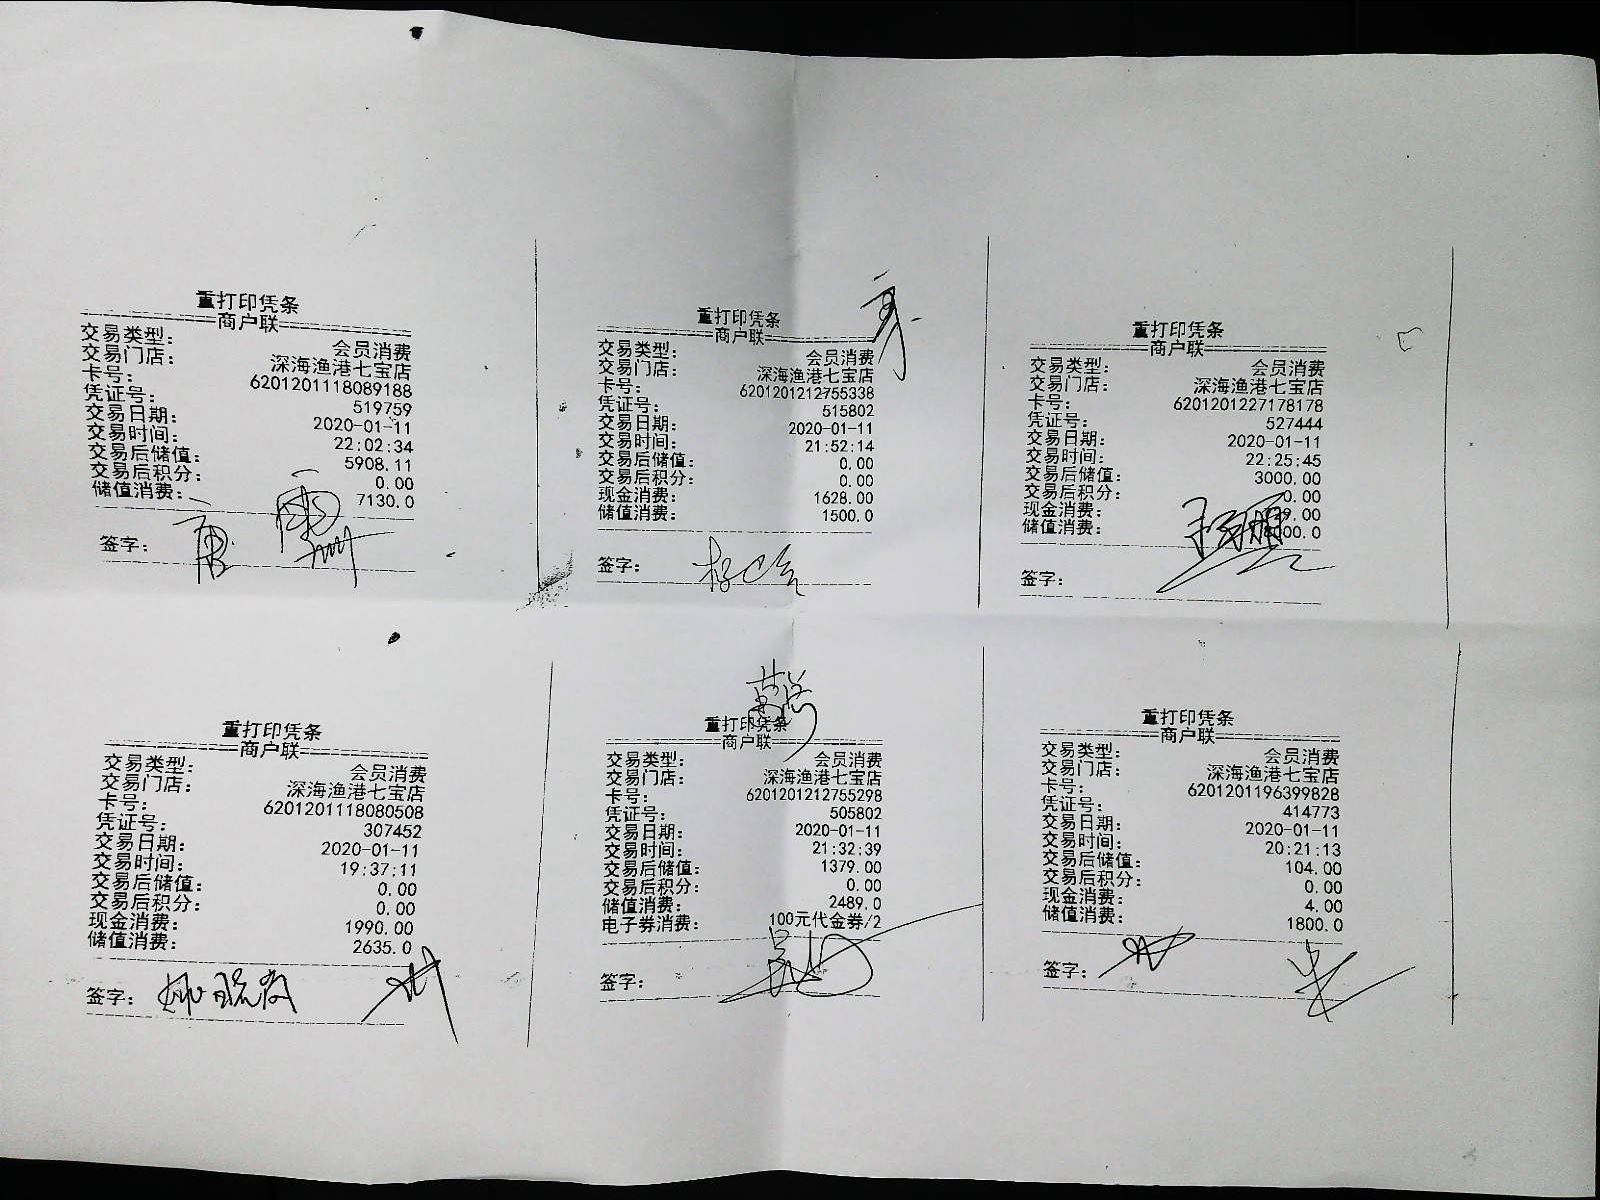 重打印凭条
商户联
交易类型： 会员消费
交易门店： 深海渔港七宝店
卡号： 6201201118089188
凭证号： 519759
交易日期： 2020-01-11
交易时间： 22:02:34
交易后储值： 5908.11
交易后积分： 0.00
储值消费： 7130.0
签字：
重打印凭条
商户联
交易类型： 会员消费
交易门店： 深海渔港七宝店
卡号： 6201201212755338
凭证号： 515802
交易日期： 2020-01-11
交易时间： 21:52:14
交易后储值： 0.00
交易后积分： 0.00
现金消费： 1628.00
储值消费： 1500.0
签字：
重打印凭条
商户联
交易类型： 会员消费
交易门店： 深海渔港七宝店
卡号： 6201201227178178
凭证号： 527444
交易日期： 2020-01-11
交易时间： 22:25:45
交易后储值： 3000.00
交易后积分： 0.00
现金消费：
储值消费：
签字：
重打印凭条
商户联
交易类型： 会员消费
交易门店： 深海渔港七宝店
卡号： 6201201118080508
凭证号： 307452
交易日期： 2020-01-11
交易时间： 19:37:11
交易后储值： 0.00
交易后积分： 0.00
现金消费： 1990.00
储值消费： 2635.0
签字：
重打印凭条
商户联
交易类型： 会员消费
交易门店： 深海渔港七宝店
卡号： 6201201212755298
凭证号： 505802
交易日期： 2020-01-11
交易时间： 21:32:39
交易后储值： 1379.00
交易后积分： 0.00
储值消费： 2489.0
电子券消费： 100元代金券/2
签字：
重打印凭条
商户联
交易类型： 会员消费
交易门店： 深海渔港七宝店
卡号： 6201201196399828
凭证号： 414773
交易日期： 2020-01-11
交易时间： 20:21:13
交易后储值： 104.00
交易后积分： 0.00
现金消费： 4.00
储值消费： 1800.0
签字：